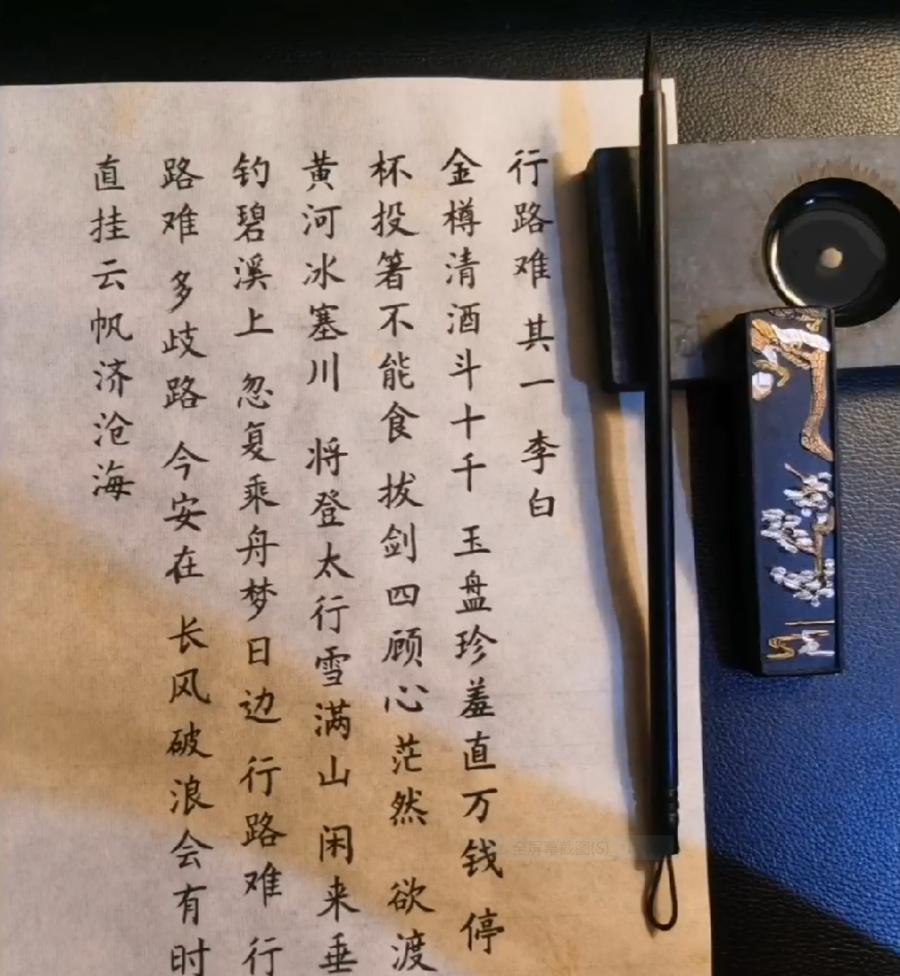 行路难 其一 李白
金樽清酒斗十千 玉盘珍羞直万钱 停
杯投箸不能食 拔剑四顾心茫然 欲渡
黄河冰塞川 将登太行雪满山 闲来垂
钓碧溪上 忽复乘舟梦日边 行路难 行
路难 多歧路 今安在 长风破浪会有时
直挂云帆济沧海
全屏幕截图(S)